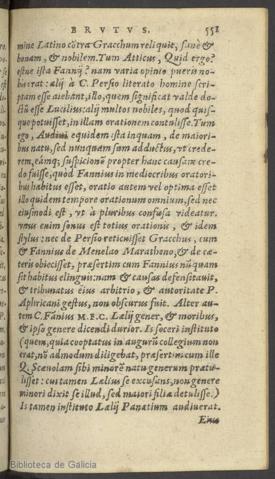 BRVTVS. 551
mine Latino cõtra Gracchum reliquit, sanè &
bonam, & nobilem. Tum Atticus, Quid ergo?
estne ista Fannij? nam varia opinio pueris no-
bis erat: alij à C. Persio literato homine scri-
ptam esse aiebant, illo, quem significat valde do-
ctũ esse Lucilius: alij multos nobiles, quod quis-
que potuisset, in illam orationem contulisse. Tum
ego, Audiui equidem ista inquam, de maiori-
bus natu, sed nunquam sum adductus, vt crede-
rem, eamq; suspicionẽ propter hanc causam cre-
do fuisse, quòd Fannius in mediocribus oratori-
bus habitus esset, oratio autem vel optima esset
illo quidem tempore orationum omnium, sed nec
eiusmodi est, vt à pluribus confusa videatur.
vnus enim sonus est totius orationis, & idem
stylus: nec de Persio reticuisset Gracchus, cum
& Fannius de Menelao Marathono, & de cæ-
teris obiecisset, præsertim cum Fannius nũquam
sit habitus elinguis: nam & causas defensitauit,
& tribunatus eius arbitrio, & autoritate P.
Aphricani gestus, non obscurus fuit. Alter au-
tem C. Fãnius M. F. C. Lælij gener, & moribus,
& ipso genere dicendi durior. Is soceri instituto
(quem, quia cooptatus in augurũ collegium non
erat, nõ admodum diligebat, præsertim cum ille
Q. Scæuolam sibi minorẽ natu generum prætu-
lisset: cui tamen Lælius se excusans, non genere
minori dixit se illud, sed maiori filiæ detulisse.)
Is tamen instituto Lælij Panætium audiuerat.
Eius
Biblioteca de Galicia